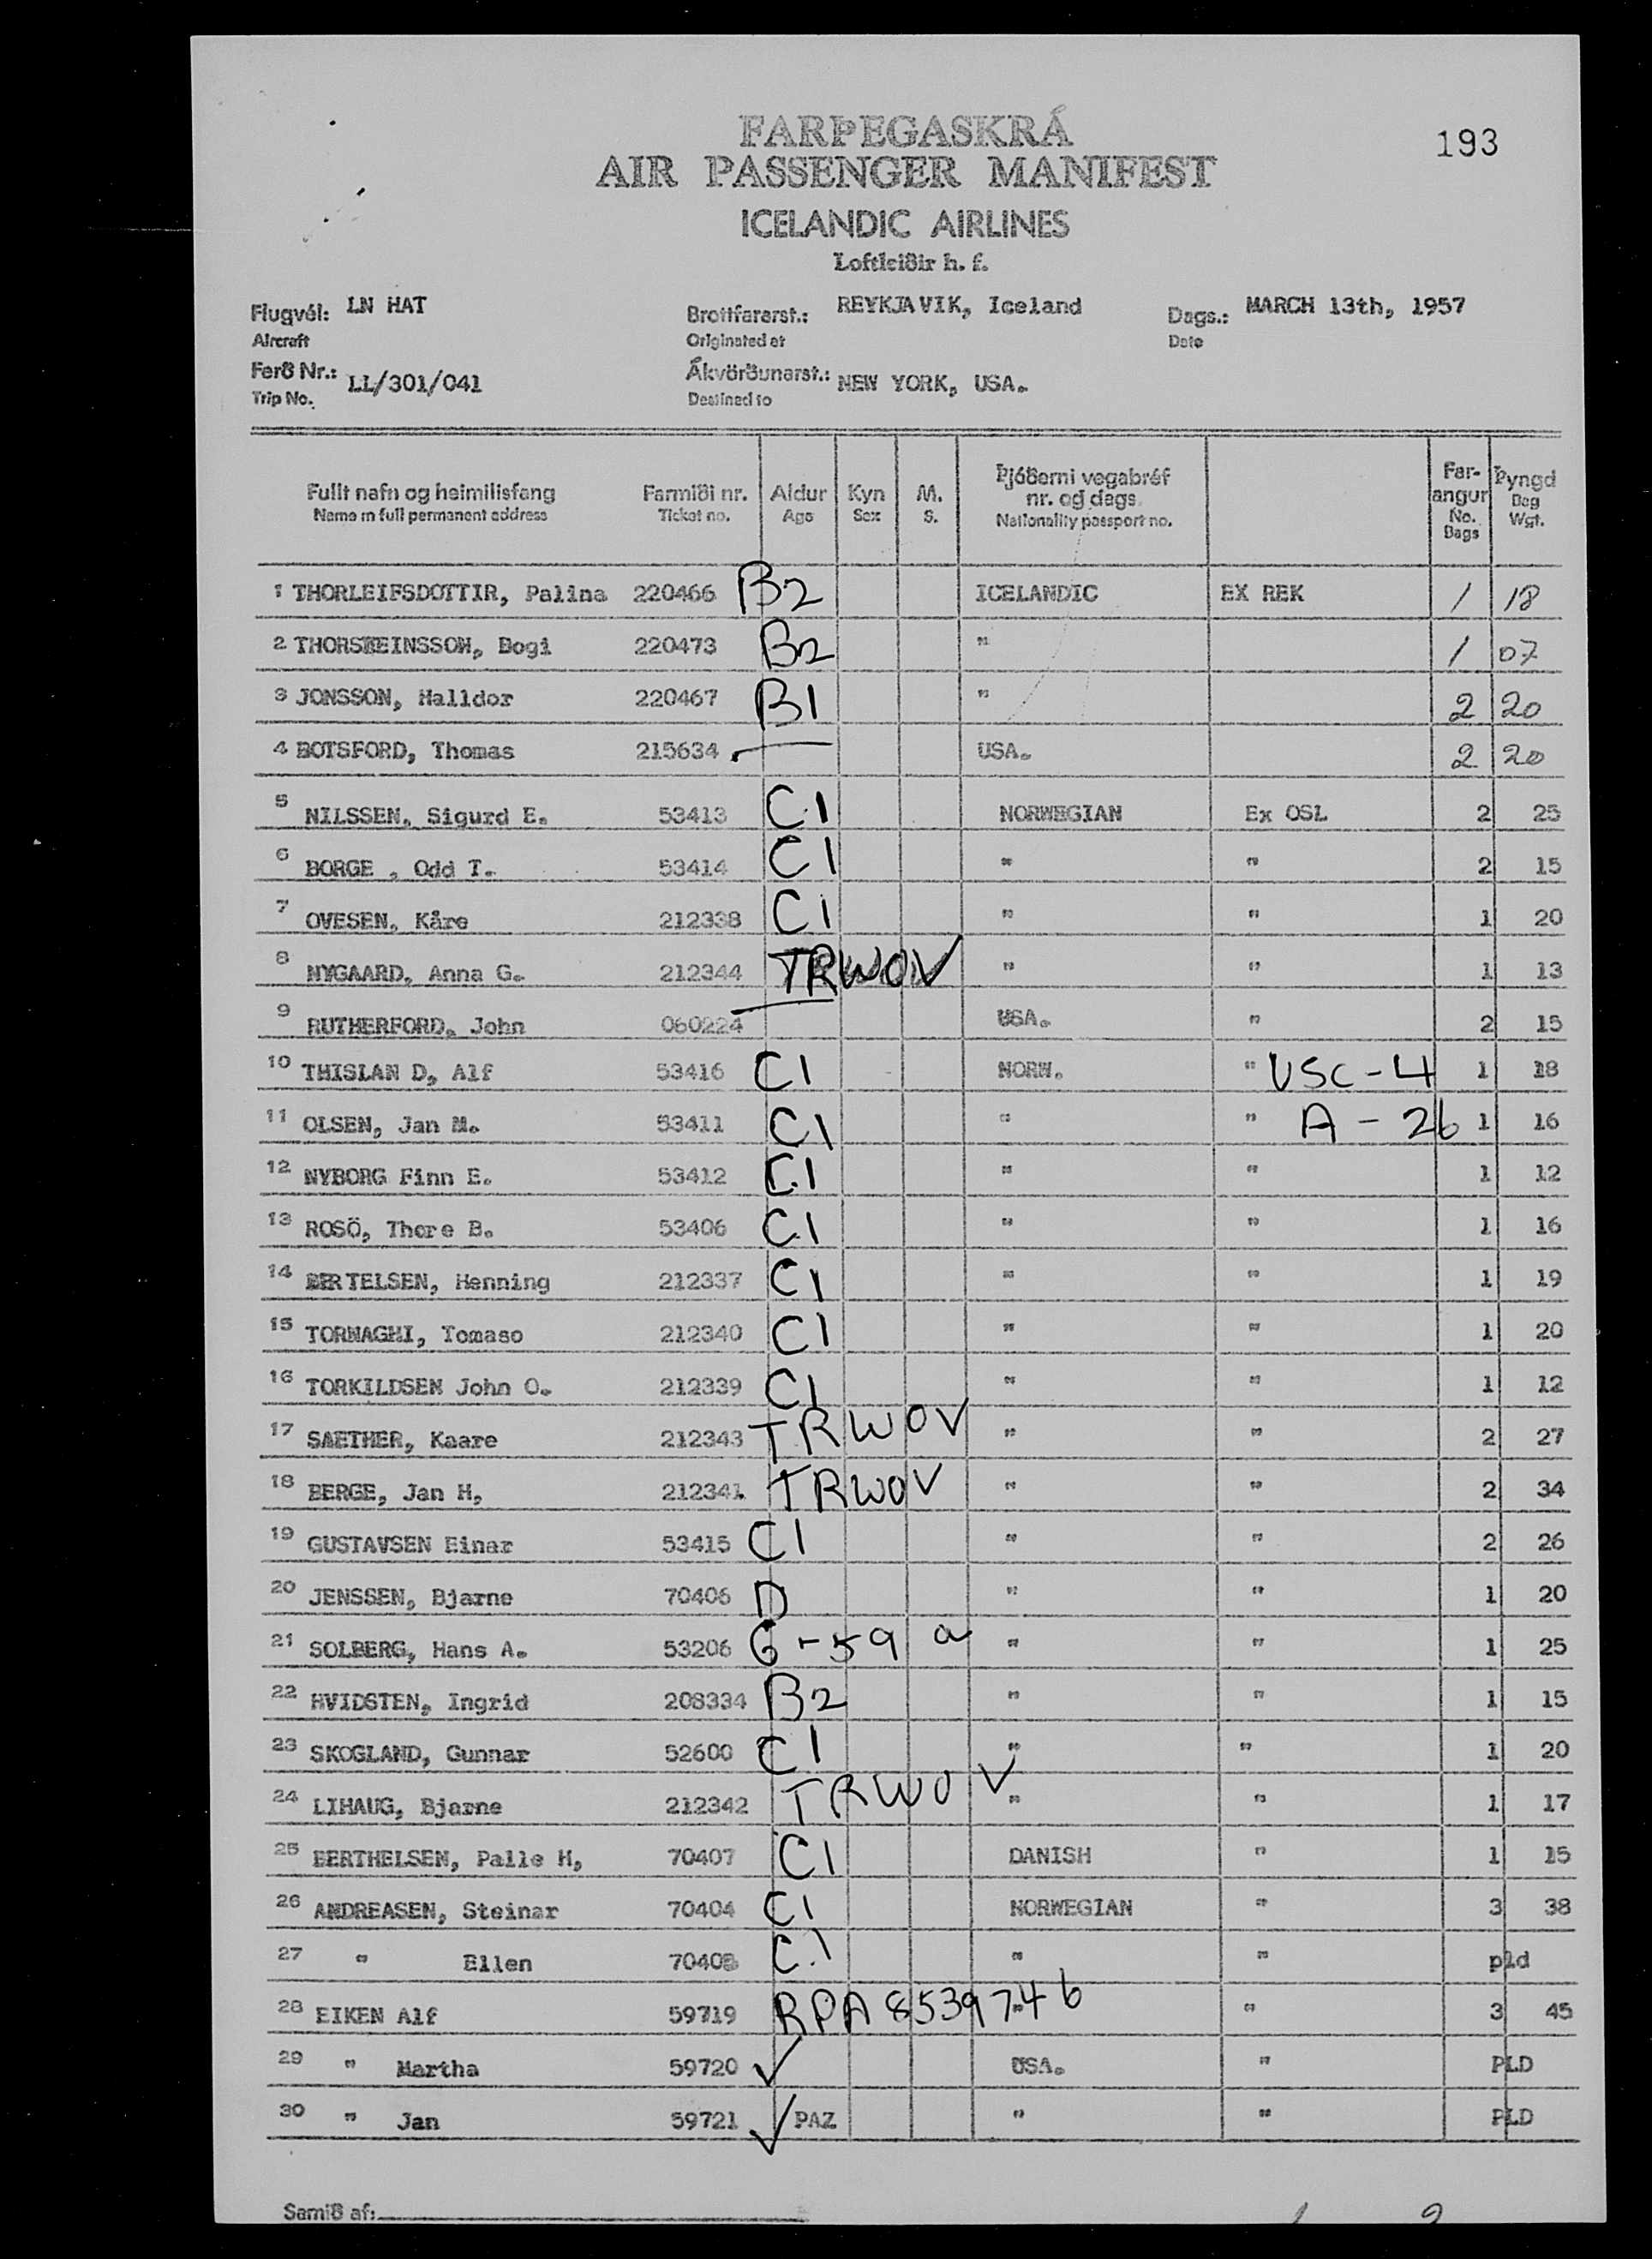 193
FARÞEGASKRÁ
AIR PASSENGER MANIFEST
ICELANDIC AIRLINES
Loftleiðir h. f.
Flugvél: LN HAT Brottfararst.: REYKJAVIK, Iceland Dags.: MARCH 13th, 1957
Aircraft Originated at Date
Ferð Nr.: LL/301/041 Ákvörðunarst.: NEW YORK, USA.
Trip No. Destined to
Fullt nafn og heimilisfang Farmiði nr. Aldur Kyn M. Þjóðerni vegabréf nr. og dags. Farangur Þyngd
Name in full permanent address Ticket no. Age Sex S. Nationality passport no. No. Bags Bag Wgt.
1 THORLEIFSDOTTIR, Palina 220466 B2 ICELANDIC EX REK 1 18
2 THORSTEINSSON, Bogi 220473 B2 " 1 07
3 JONSSON, Halldor 220467 B1 " 2 20
4 BOTSFORD, Thomas 215634 USA. 2 20
5 NILSSEN, Sigurd E. 53413 C1 NORWEGIAN Ex OSL 2 25
6 BORGE , Odd T. 53414 C1 " " 2 15
7 OVESEN, Kåre 212338 C1 " " 1 20
8 NYGAARD, Anna G. 212344 TRWOV " " 1 13
9 RUTHERFORD, John 060224 USA. " 2 15
10 THISLAN D, Alf 53416 C1 NORW. " USC-4 1 18
11 OLSEN, Jan M. 53411 C1 " " A-26 1 16
12 NYBORG Finn E. 53412 C1 " " 1 12
13 ROSÖ, Thore B. 53406 C1 " " 1 16
14 BERTELSEN, Henning 212337 C1 " " 1 19
15 TORNAGHI, Tomaso 212340 C1 " " 1 20
16 TORKILDSEN John O. 212339 C1 " " 1 12
17 SAETHER, Kaare 212343 TRWOV " " 2 27
18 BERGE, Jan H, 212341. TRWOV " " 2 34
19 GUSTAVSEN Einar 53415 C1 " " 2 26
20 JENSSEN, Bjarne 70406 D " " 1 20
21 SOLBERG, Hans A. 53206 G-59 a " " 1 25
22 HVIDSTEN, Ingrid 208334 B2 " " 1 15
23 SKOGLAND, Gunnar 52600 C1 " " 1 20
24 LIHAUG, Bjarne 212342 TRWOV " " 1 17
25 BERTHELSEN, Palle H, 70407 C1 DANISH " 1 15
26 ANDREASEN, Steinar 70404 C1 NORWEGIAN " 3 38
27 " Ellen 70408 C1 " " pld
28 EIKEN Alf 59719 RPA 8539746 " " 3 45
29 " Martha 59720 ✓ USA. " PLD
30 " Jan 59721 ✓ PAZ " " PLD
Samið af: